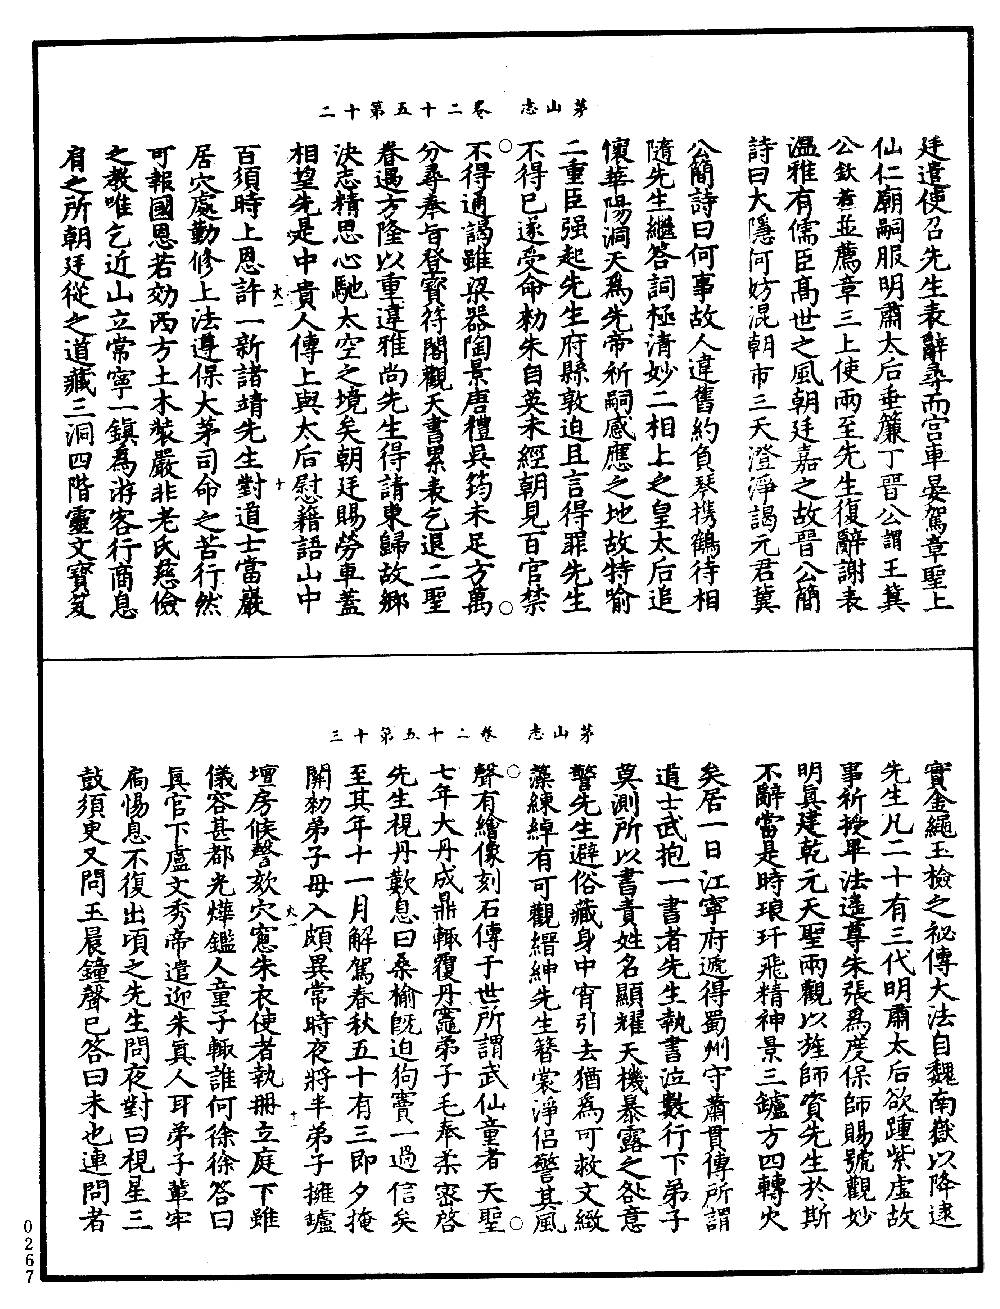 茅山志　卷二十五第十二
廷遣使召先生表辭尋而宮車晏駕章聖上
仙仁廟嗣服明肅太后垂簾丁晉公謂王冀
公欽若並薦章三上使兩至先生復辭謝表
溫雅有儒臣髙世之風朝廷嘉之故晉公簡
詩曰大隱何妨混朝市三天澄淨謁元君冀
公簡詩曰何事故人違舊約負琴携鶴待相
隨先生繼答詞極清妙二相上之皇太后追
懷華陽洞天為先帝祈嗣感應之地故特喻
二重臣强起先生府縣敦迫且言得罪先生
不得已遂受命勑朱自英未經朝見百官禁
不得通謁雖梁器陶景唐禮吳筠未足方萬
分尋奉旨登寶符閣觀天書累表乞退二聖
眷遇方隆以重違雅尚先生得請東歸故鄉
決志精思心馳太空之境矣朝廷賜勞車蓋
相望先是中貴人傳上與太后慰藉語山中
百須時上恩許一新諸靖先生對道士當巖
居穴處勤修上法遵保大茅司命之苦行然
可報國恩若効西方土木裝嚴非老氏慈儉
之教唯乞近山立常寧一鎮為游客行商息
肩之所朝廷從之道藏三洞四階靈文寶笈
茅山志　卷二十五第十三
寶金繩玉檢之祕傳大法自魏南嶽以降逮
先生凡二十有三代明肅太后欲踵紫虛故
事祈授畢法遙尊朱張為度保師賜號觀妙
明真建乾元天聖兩觀以旌師資先生於斯
不辭當是時琅玕飛精神景三鑪方四轉火
矣居一日江寧府遞得蜀州守蕭貫傳所謂
道士武抱一書者先生執書泣數行下弟子
莫測所以書責姓名顯耀天機暴露之咎意
警先生避俗藏身中宵引去猶為可救文緻
藻練綽有可觀縉紳先生簪裳淨侶警其風
聲有繪像刻石傳于世所謂武仙童者天聖
七年大丹成鼎輒覆丹竈弟子毛奉柔密啓
先生視丹歎息曰桑榆既迫狗竇一過信矣
至其年十一月解駕春秋五十有三即夕掩
關勑弟子母入頗異常時夜將半弟子擁爐
壇房候謦欬穴窻朱衣使者執冊立庭下雖
儀容甚都光燁鑑人童子輒誰何徐徐答曰
真官下盧文秀帝遣迎朱真人耳弟子輩牢
扃惕息不復出頃之先生問夜對曰視星三
鼓須臾又問玉晨鐘聲已答曰未也連問者
0267